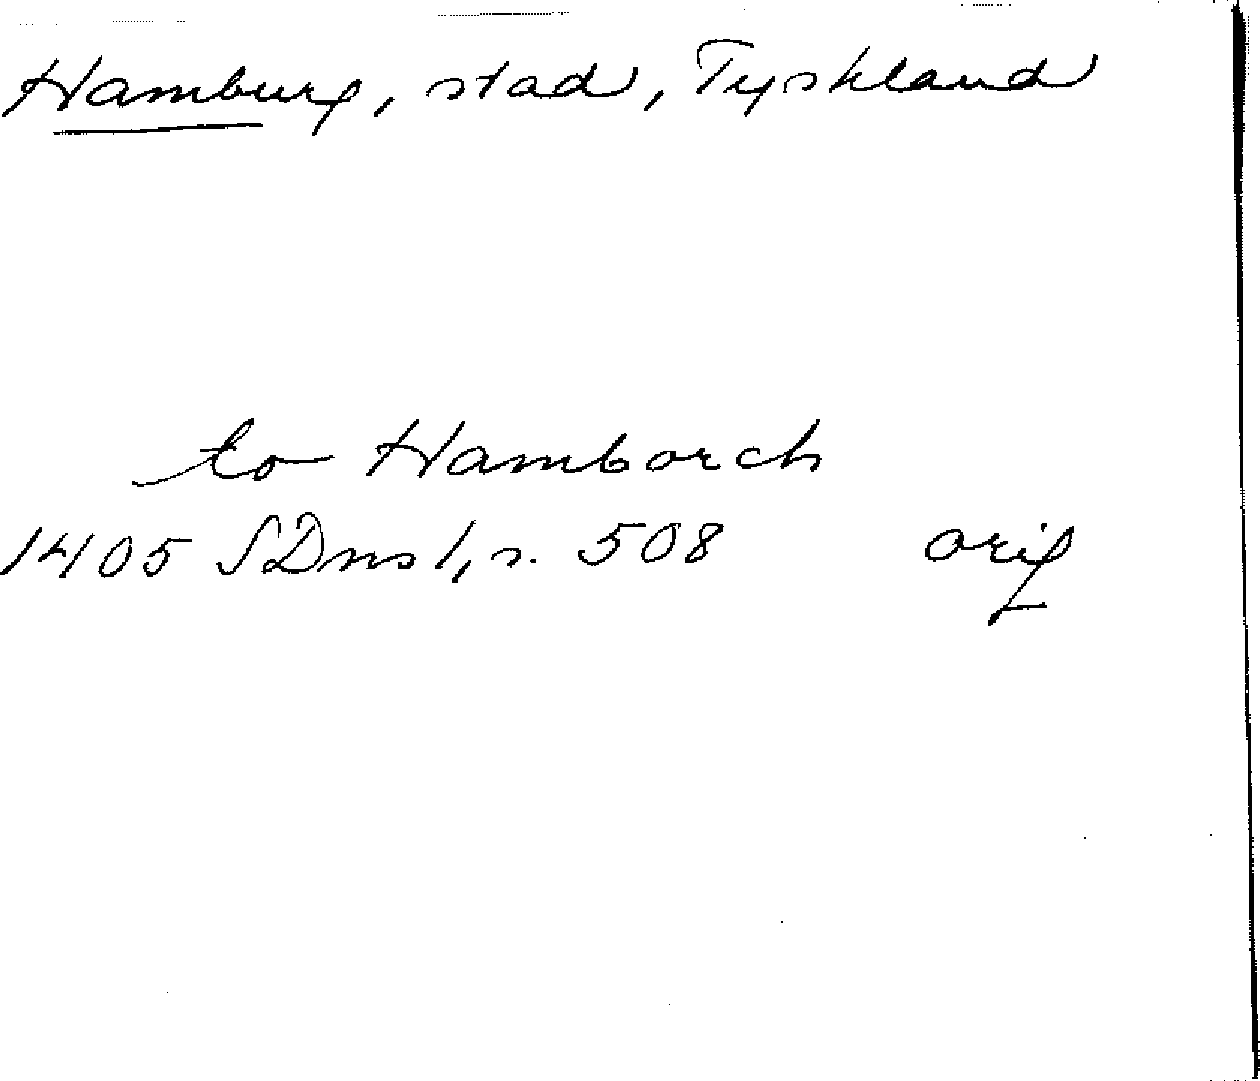 Hamburg, stad, Tyskland
to Hamborch
1405 SDns 1, s. 508 orig